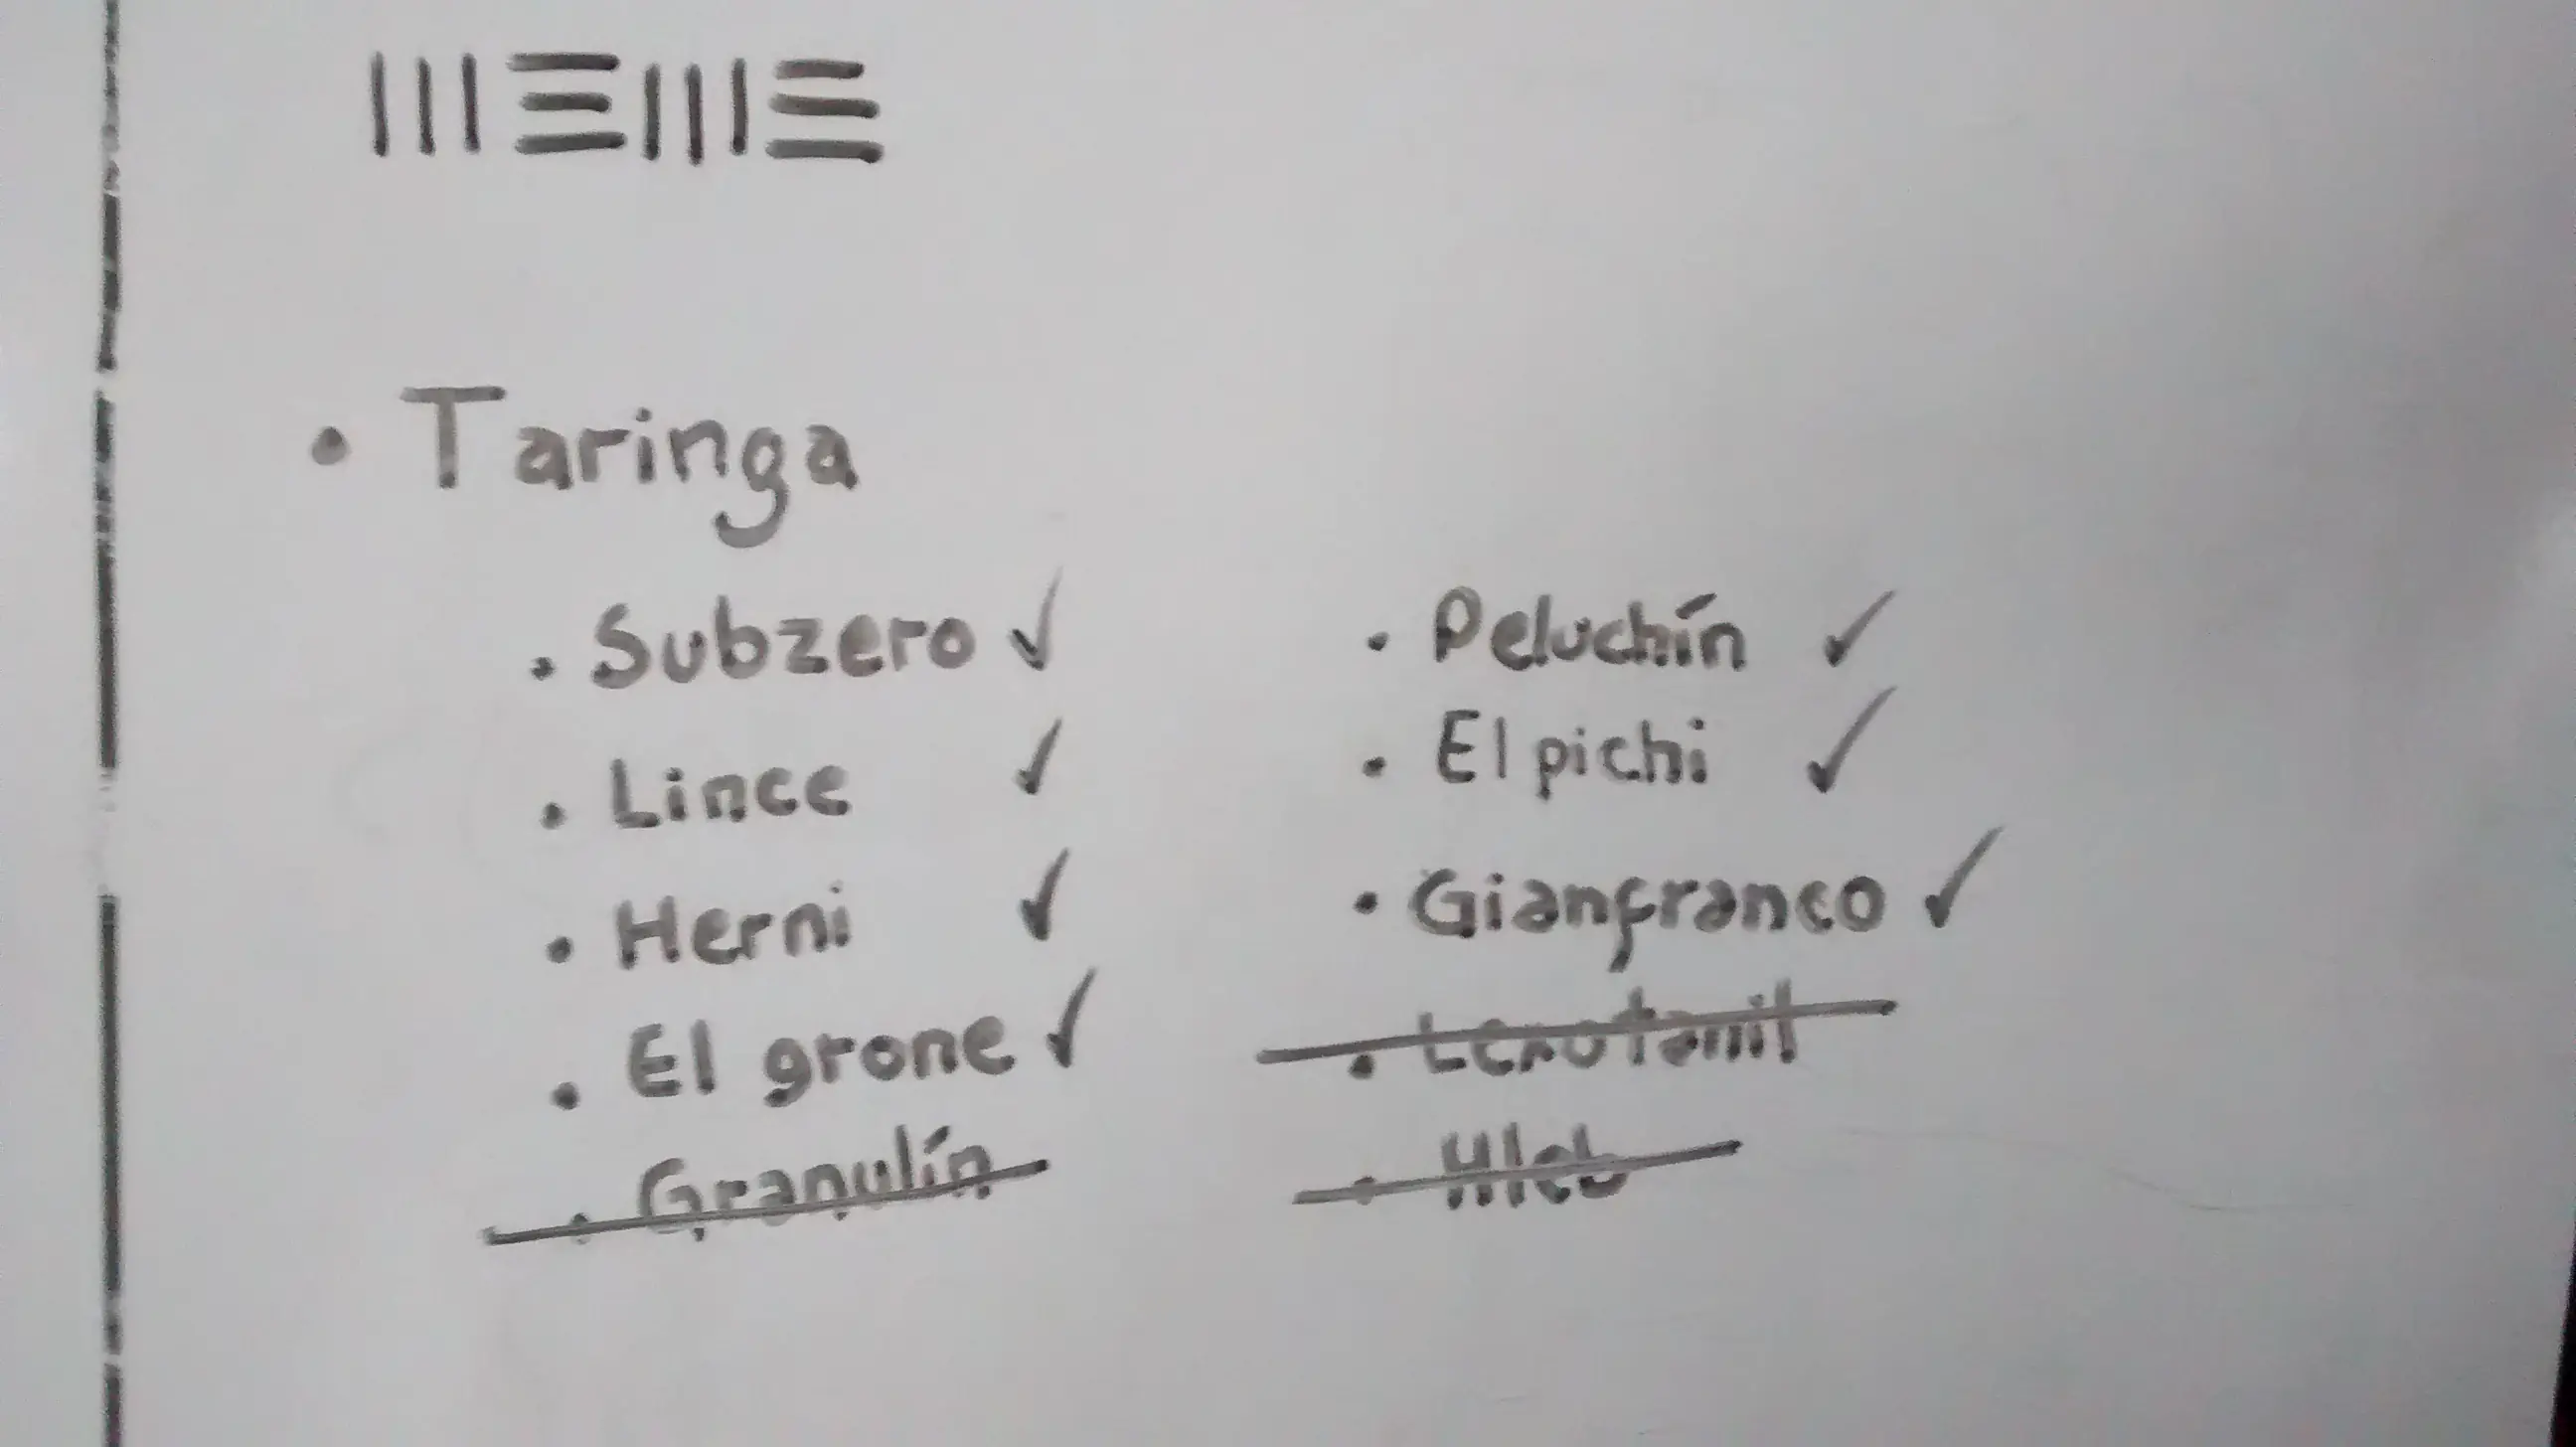 MEME
• Taringa
. Subzero ✓
. Lince ✓
. Herni ✓
. El grone ✓
. Granulín
. Peluchín ✓
. El pichi ✓
. Gianfranco ✓
. Hleb